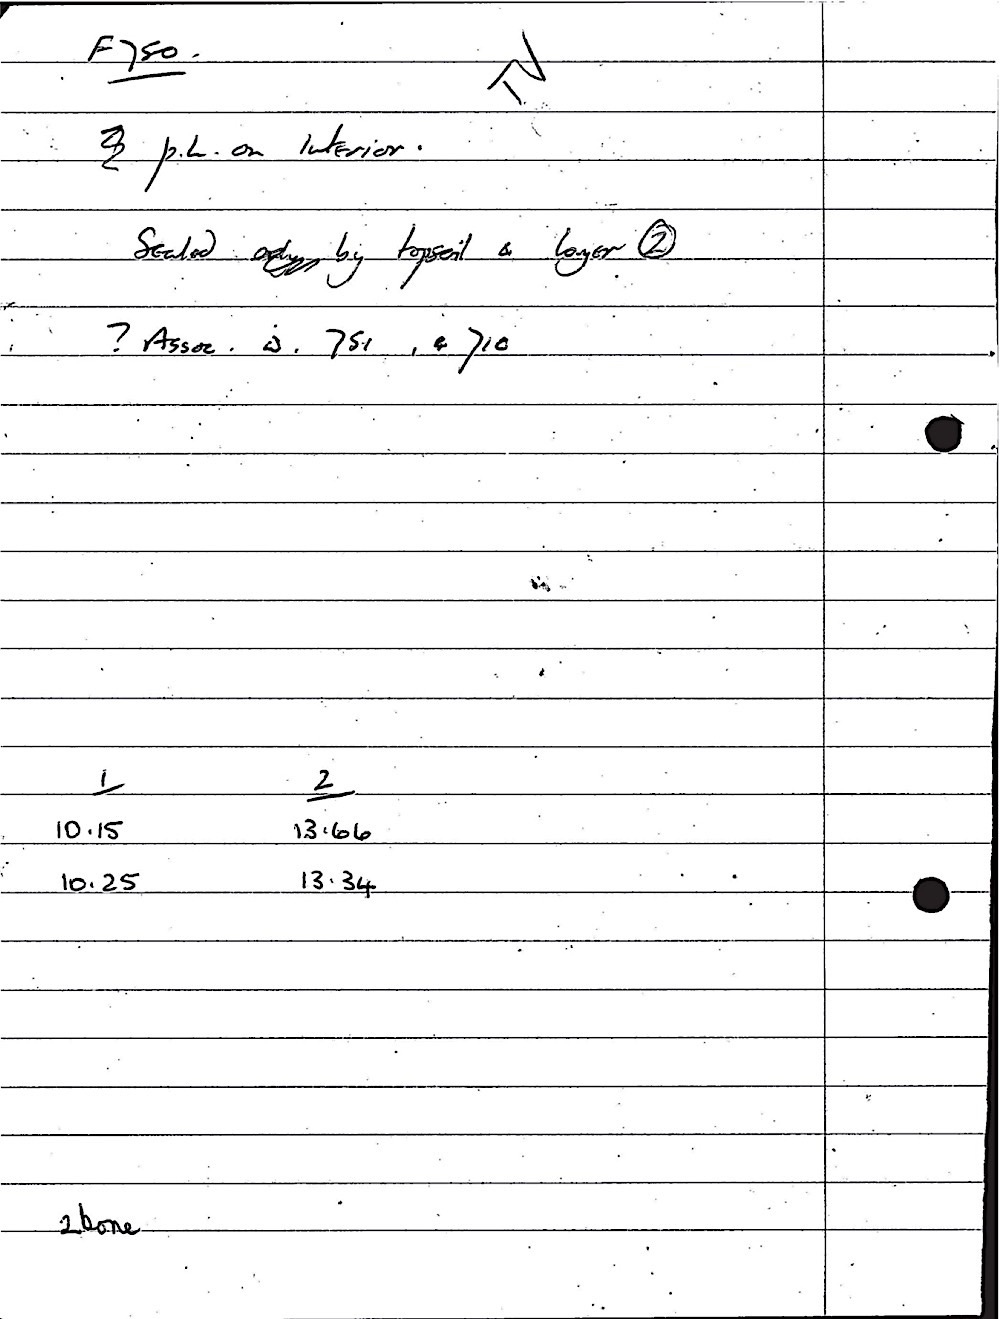 F750.
p.h. on Interior.
Sealed by topsoil & layer ②
? Assoc. w. 751, & 710
1 2
10.15 13.66
10.25 13.34
2 bone